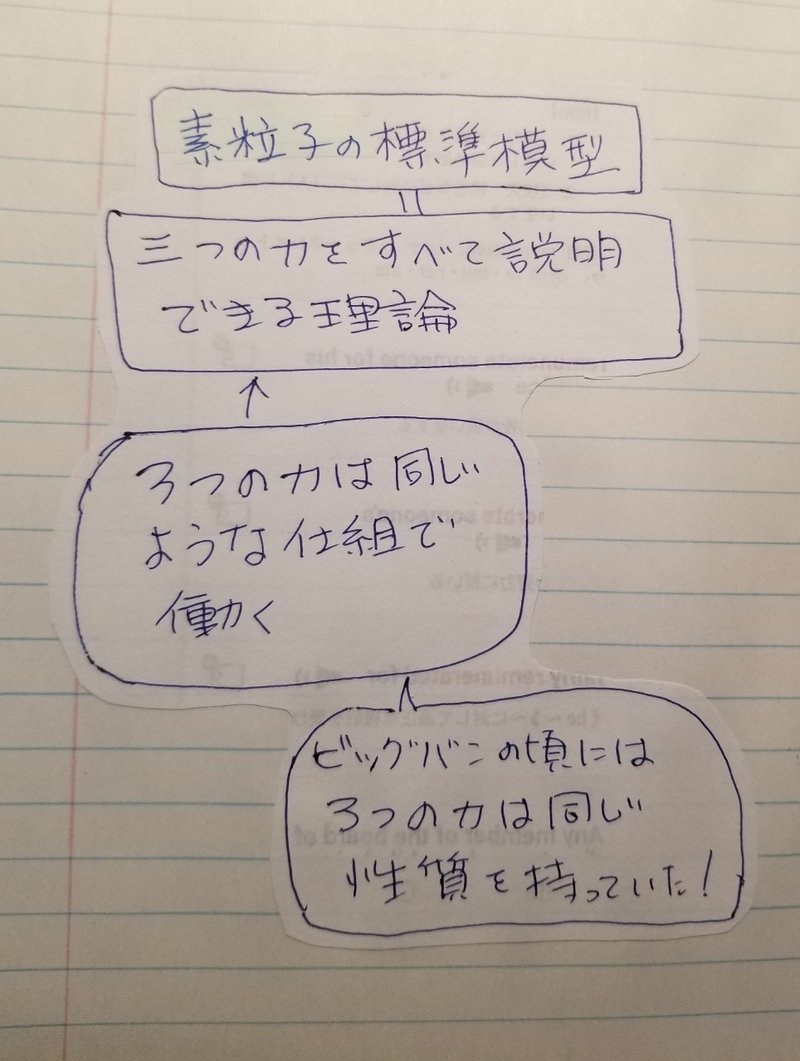 素粒子の標準模型
三つの力をすべて説明
できる理論
3つの力は同じ
ような仕組で
働く
ビッグバンの頃には
3つの力は同じ
性質を持っていた!